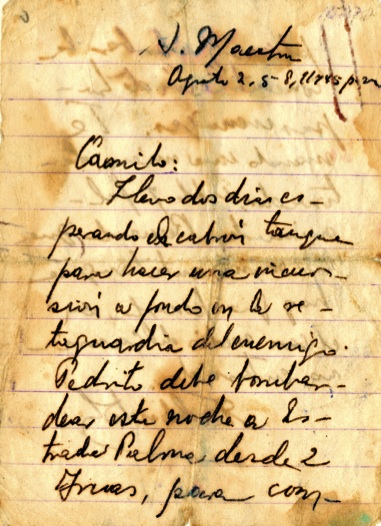 S. Maestra
Agosto 2, 58, 11 y 45 p.m
Camilo:
Llevo dos días es-
perando el cabrón tanque
para hacer una incur-
sión a fondo en la re-
taguardia del enemigo.
Pedrito debe bombar-
dear esta noche a Es-
trada Palma desde 2
Grúas, para com-